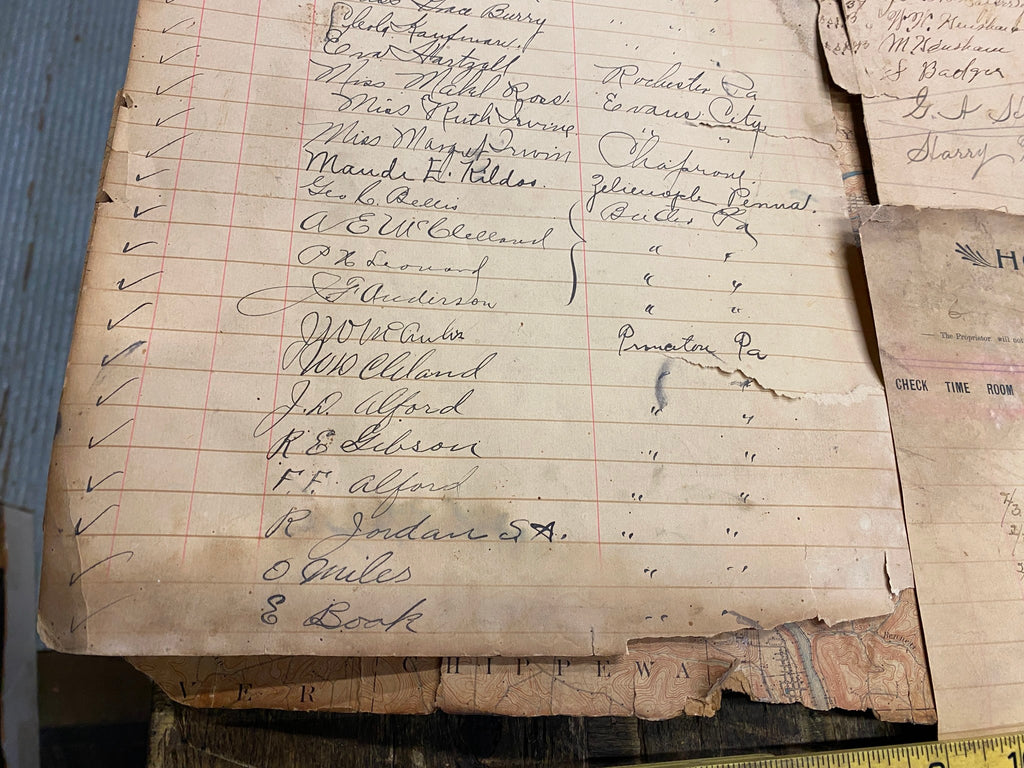 Grace Burry " "
Kaufman " "
Eva Hartzell
Miss Mabel Ross. Rochester Pa
Miss Ruth Irvine Evans City
Miss Irwin "
Maude E. Kildoo.
Geo C. Bellis Zelienople Penna.
A E McClelland Butler Pa
P H Leonard " "
J F Anderson " "
" "
J W Princeton Pa
W D Cleland "
J. D. Alford " "
R E Gibson " "
F. F. Alford " "
R Jordan S A. " "
O Miles " "
E Book " "
W. K.
M Henshaw
J Badger
G. A
Harry
H
The Proprietor will not
CHECK TIME ROOM
VER CHIPPEWA